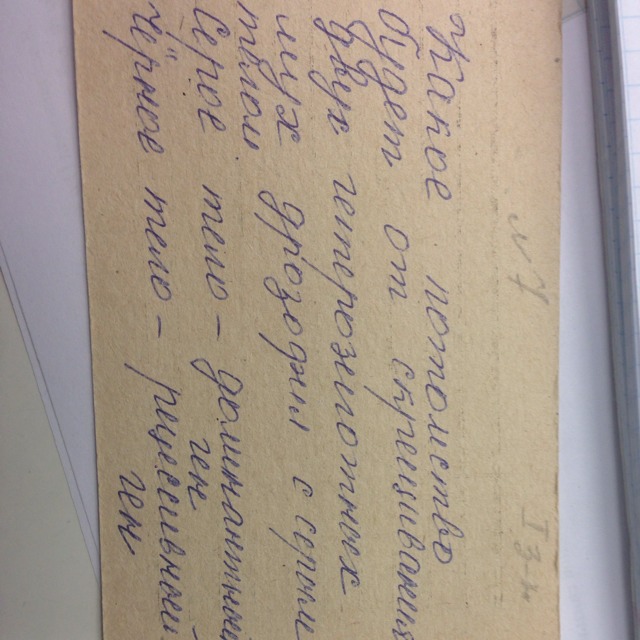 Какое потомство
будет от скрещивания
двух гетерозиготных
мух дрозофил с серым
телом
Серое тело – доминантный
ген
чёрное тело – рецессивный
ген